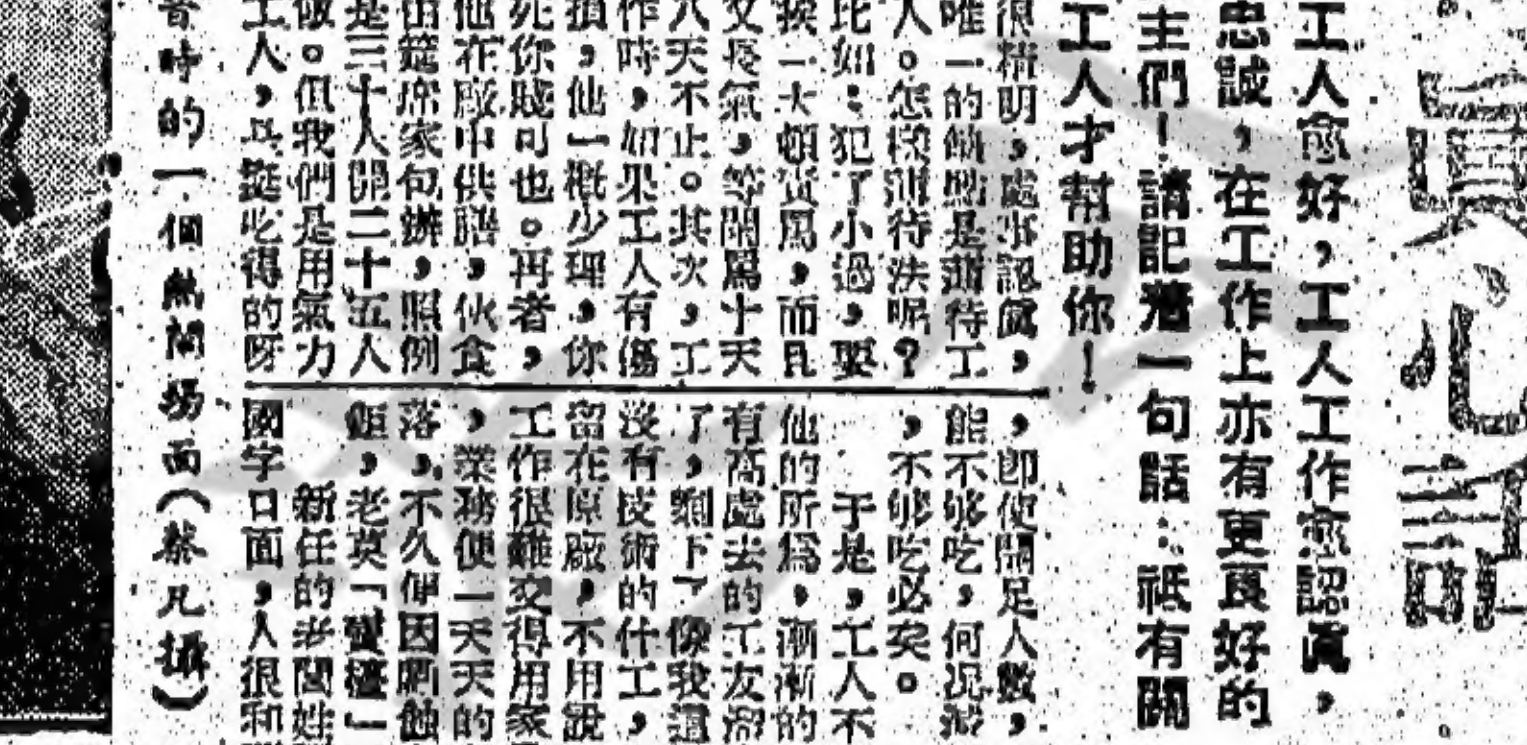 心話
工人愈好，工人工作愈認眞，
忠誠，在工作上亦有更良好的
主們！請記着一句話：祗有關
工人才幫助你！
很精明，處事認眞，
唯一的缺點是薄待工
人。怎樣薄待法呢？
比如：犯了小過，要
挨一大頓責罵，而且
又長氣，等閒罵十天
八天不止。其次，工
作時，如果工人有傷
損，他一概少理，你
死你賤可也。再者，
他在廠中供膳，伙食
由筵席家包辦，照例
是三十人開二十五人
飯。但我們是用氣力
工人，挺吃得的呀
，卽使開足人數，
能不够吃，何况減
，不够吃必矣。
于是，工人不
他的所爲，漸漸的
有高處去的工友溜
了，剩下了像我這
沒有技術的什工，
留在原廠，不用說
工作很難交得用家
，業務便一天天的
落，不久便因虧蝕
鉅，老莫「」
新任的老闆姓
國字口面，人很和
音時的一個熱鬧場面（蔡凡攝）